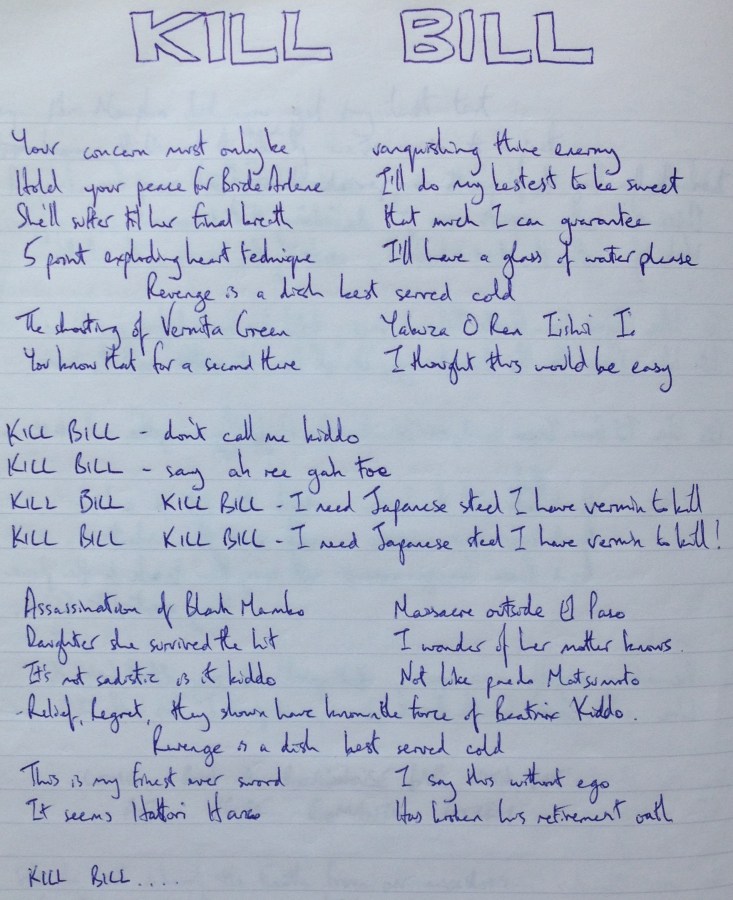 KILL BILL
Your concern must only be vanquishing thine enemy
Hold your peace for Bride Arlene I'll do my bestest to be sweet
She'll suffer til her final breath that much I can guarantee
5 point exploding heart technique I'll have a glass of water please
Revenge is a dish best served cold
The shooting of Vernita Green Yakuza O Ren Iishi I
You know that for a second there I thought this would be easy
KILL BILL - don't call me kiddo
KILL BILL - say ah ree gah toe
KILL BILL KILL BILL - I need Japanese steel I have vermin to kill
KILL BILL KILL BILL - I need Japanese steel I have vermin to kill!
Assassination of Black Mamba Massacre outside El Paso
Daughter she survived the hit I wonder if her mother knows.
It's not sadistic is it kiddo Not like paedo Matsumoto
-Relief, Regret, they have known the force of Beatrix Kiddo.
Revenge is a dish best served cold
This is my finest ever sword I say this without ego
It seems Hattori Hanzo Has broken his retirement oath
KILL BILL....